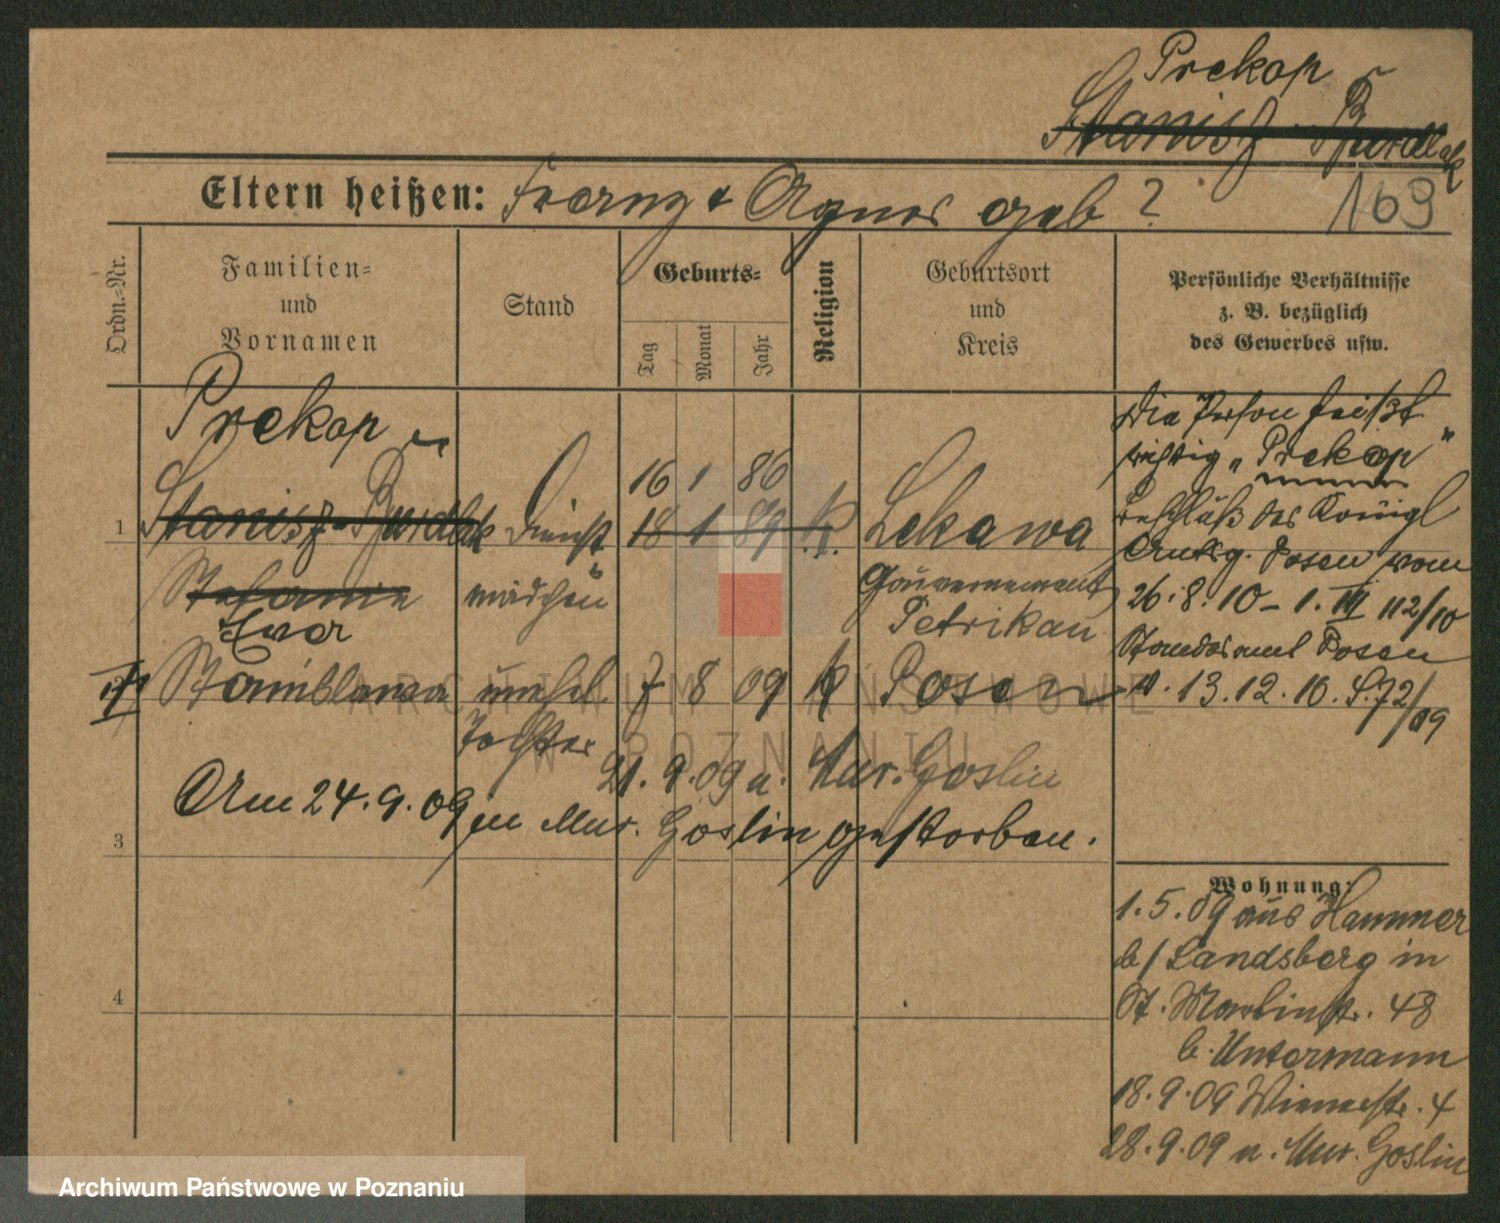 Prekop
Stanisz-Burdlak
Eltern heißen: Franz & Agnes geb ?
169
Ordn.-Nr.
Familien-
und
Vornamen
Stand
Geburts-
Tag
Monat
Jahr
Religion
Geburtsort
und
Kreis
Persönliche Verhältnisse
z. B. bezüglich
des Gewerbes usw.
Prekop
16 1 86
1 Stanisz-Burdlak Dienst 18 1 89 K. Lekawa
Stefanie mädchen Gouvernement
Ever Petrikau
2 Stanislawa unehel 7 8 09 K Posen
Tochter
21. 9. 09 n. Mur. Goslin
Am 24. 9. 09 in Mur. Goslin gestorben.
3
4
Die Person heißt
richtig „Prekop"
Beschluß des Königl
Amtsg. Posen vom
26. 8. 10 - 1. III 112/10
Standesamt Posen
v. 13. 12. 10. S. 72/09
Wohnung:
1. 5. 09 aus Hammer
b/ Landsberg in
St. Martinstr. 48
b. Untermann
18. 9. 09 Wienerstr. 4
28. 9. 09 n. Mur. Goslin
ARCHIWUM PAŃSTWOWE
W POZNANIU
Archiwum Państwowe w Poznaniu